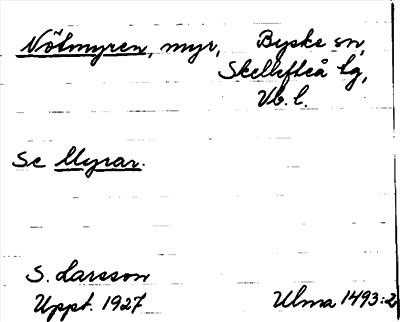 Nötmyren, myr, Byske sn,
Skellefteå tg,
Vb. l.
Se Myrar.
S. Larsson
Uppt. 1927 Ulma 1493:2